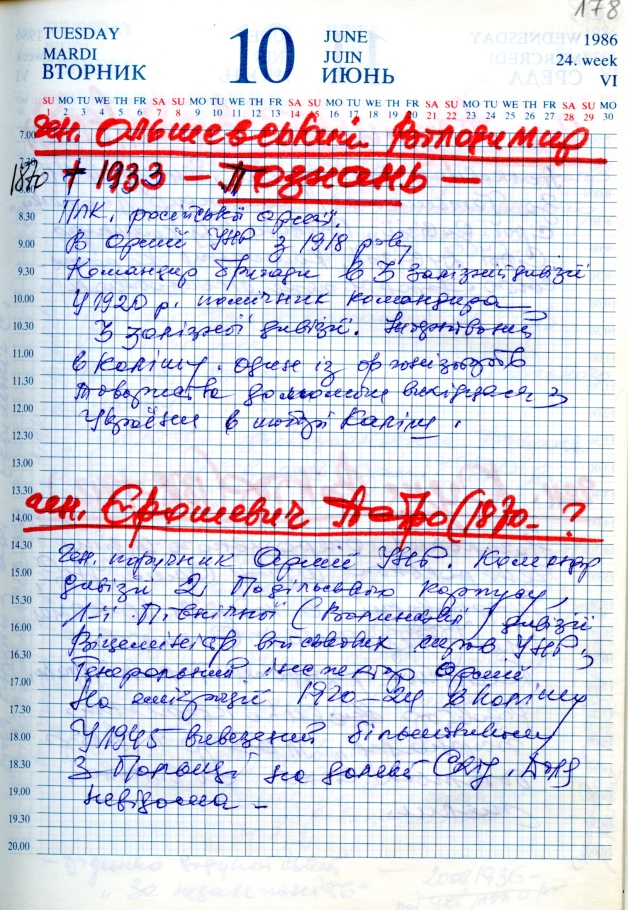 178
TUESDAY
MARDI
ВТОРНИК
10
JUNE
JUIN
ИЮНЬ
1986
24. week
VI
SU MO TU WE TH FR SA SU MO TU WE TH FR SA SU MO TU WE TH FR SA SU MO TU WE TH FR SA SU MO
1 2 3 4 5 6 7 8 9 10 11 12 13 14 15 16 17 18 19 20 21 22 23 24 25 26 27 28 29 30
7.00 ген. Ольшевський Володимир
7.30
1870 † 1933 – Познань –
8.30 ППК. російської армії.
9.00 В Армії УНР з 1918 року,
9.30 Командир бригади в 3 Залізній дивізії
10.00 У 1920 р. помічник командира
10.30 3 залізної дивізії. Інтернований
11.00 в Каліші. один із організаторів
11.30 Товариства допомоги вихідцям з
12.00 України в місті Каліш.
12.30
13.00
13.30
14.00 ген. Єрошевич Петро (1870 - ?
14.30 Ген. поручник Армії УНР. Командир
15.00 дивізії 2 Подільського Корпусу,
15.30 1-ї Північної ( ) дивізії
16.00 Віцеміністр військових справ УНР,
16.30 Генеральний інспектор Армії
17.00 На еміграції 1920–24 в Каліші
17.30
18.00 У 1945 вивезений більшовиками
18.30 З Польщі на далекий Схід. Доля
19.00 невідома –
19.30
20.00
2008 1936-